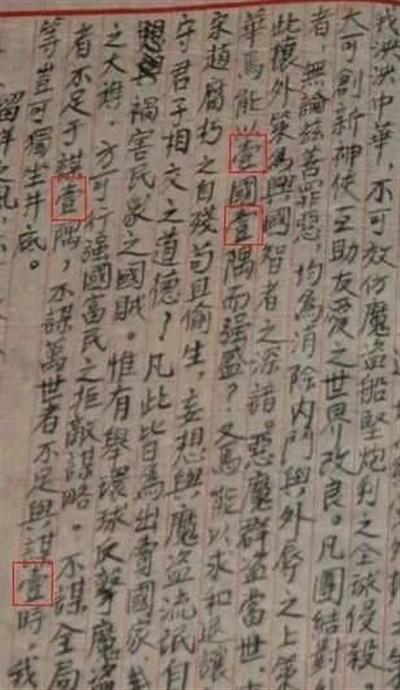 我洪洪中華，不可放仿魔盗船堅炮利之全球侵殺。
大可創新神使互助友愛之世界改良。凡團結對外
者，無論絲善罪惡，均為消除内鬥與外辱之上策
此攘外策為興國智者之深諳。惡魔群盗當世，
華焉能以壹國壹隅而强盛？又焉能以求和退讓
宋趙腐朽之自殘苟且偷生，妄想與魔盗流氓自
守君子相交之道德？凡此皆為出賣國家
禍害民衆之國賊。惟有舉環球反擊魔盗
之大雄，方可行强國富民之拒敵謀略。不謀全局
者不足于謀壹隅，不謀萬世者不足與謀壹時。我
等豈可獨生井底。